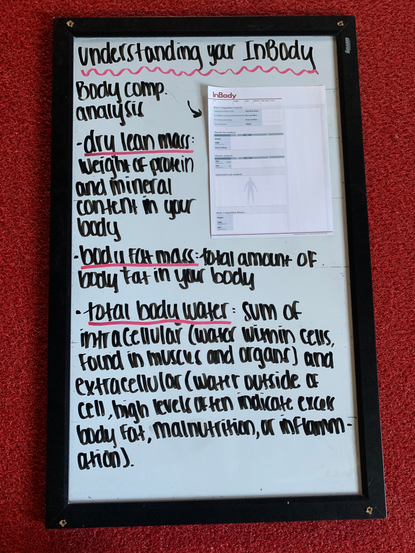 understanding your InBody
Body comp.
analysis
InBody
- dry lean mass:
weight of protein
and mineral
content in your
body
- body fat mass: total amount of
body fat in your body
• total body water: sum of
intracellular (water within cells,
found in muscles and organs) and
extracellular (water outside of
cell, high levels often indicate excess
body fat, malnutrition, or inflamm-
ation).